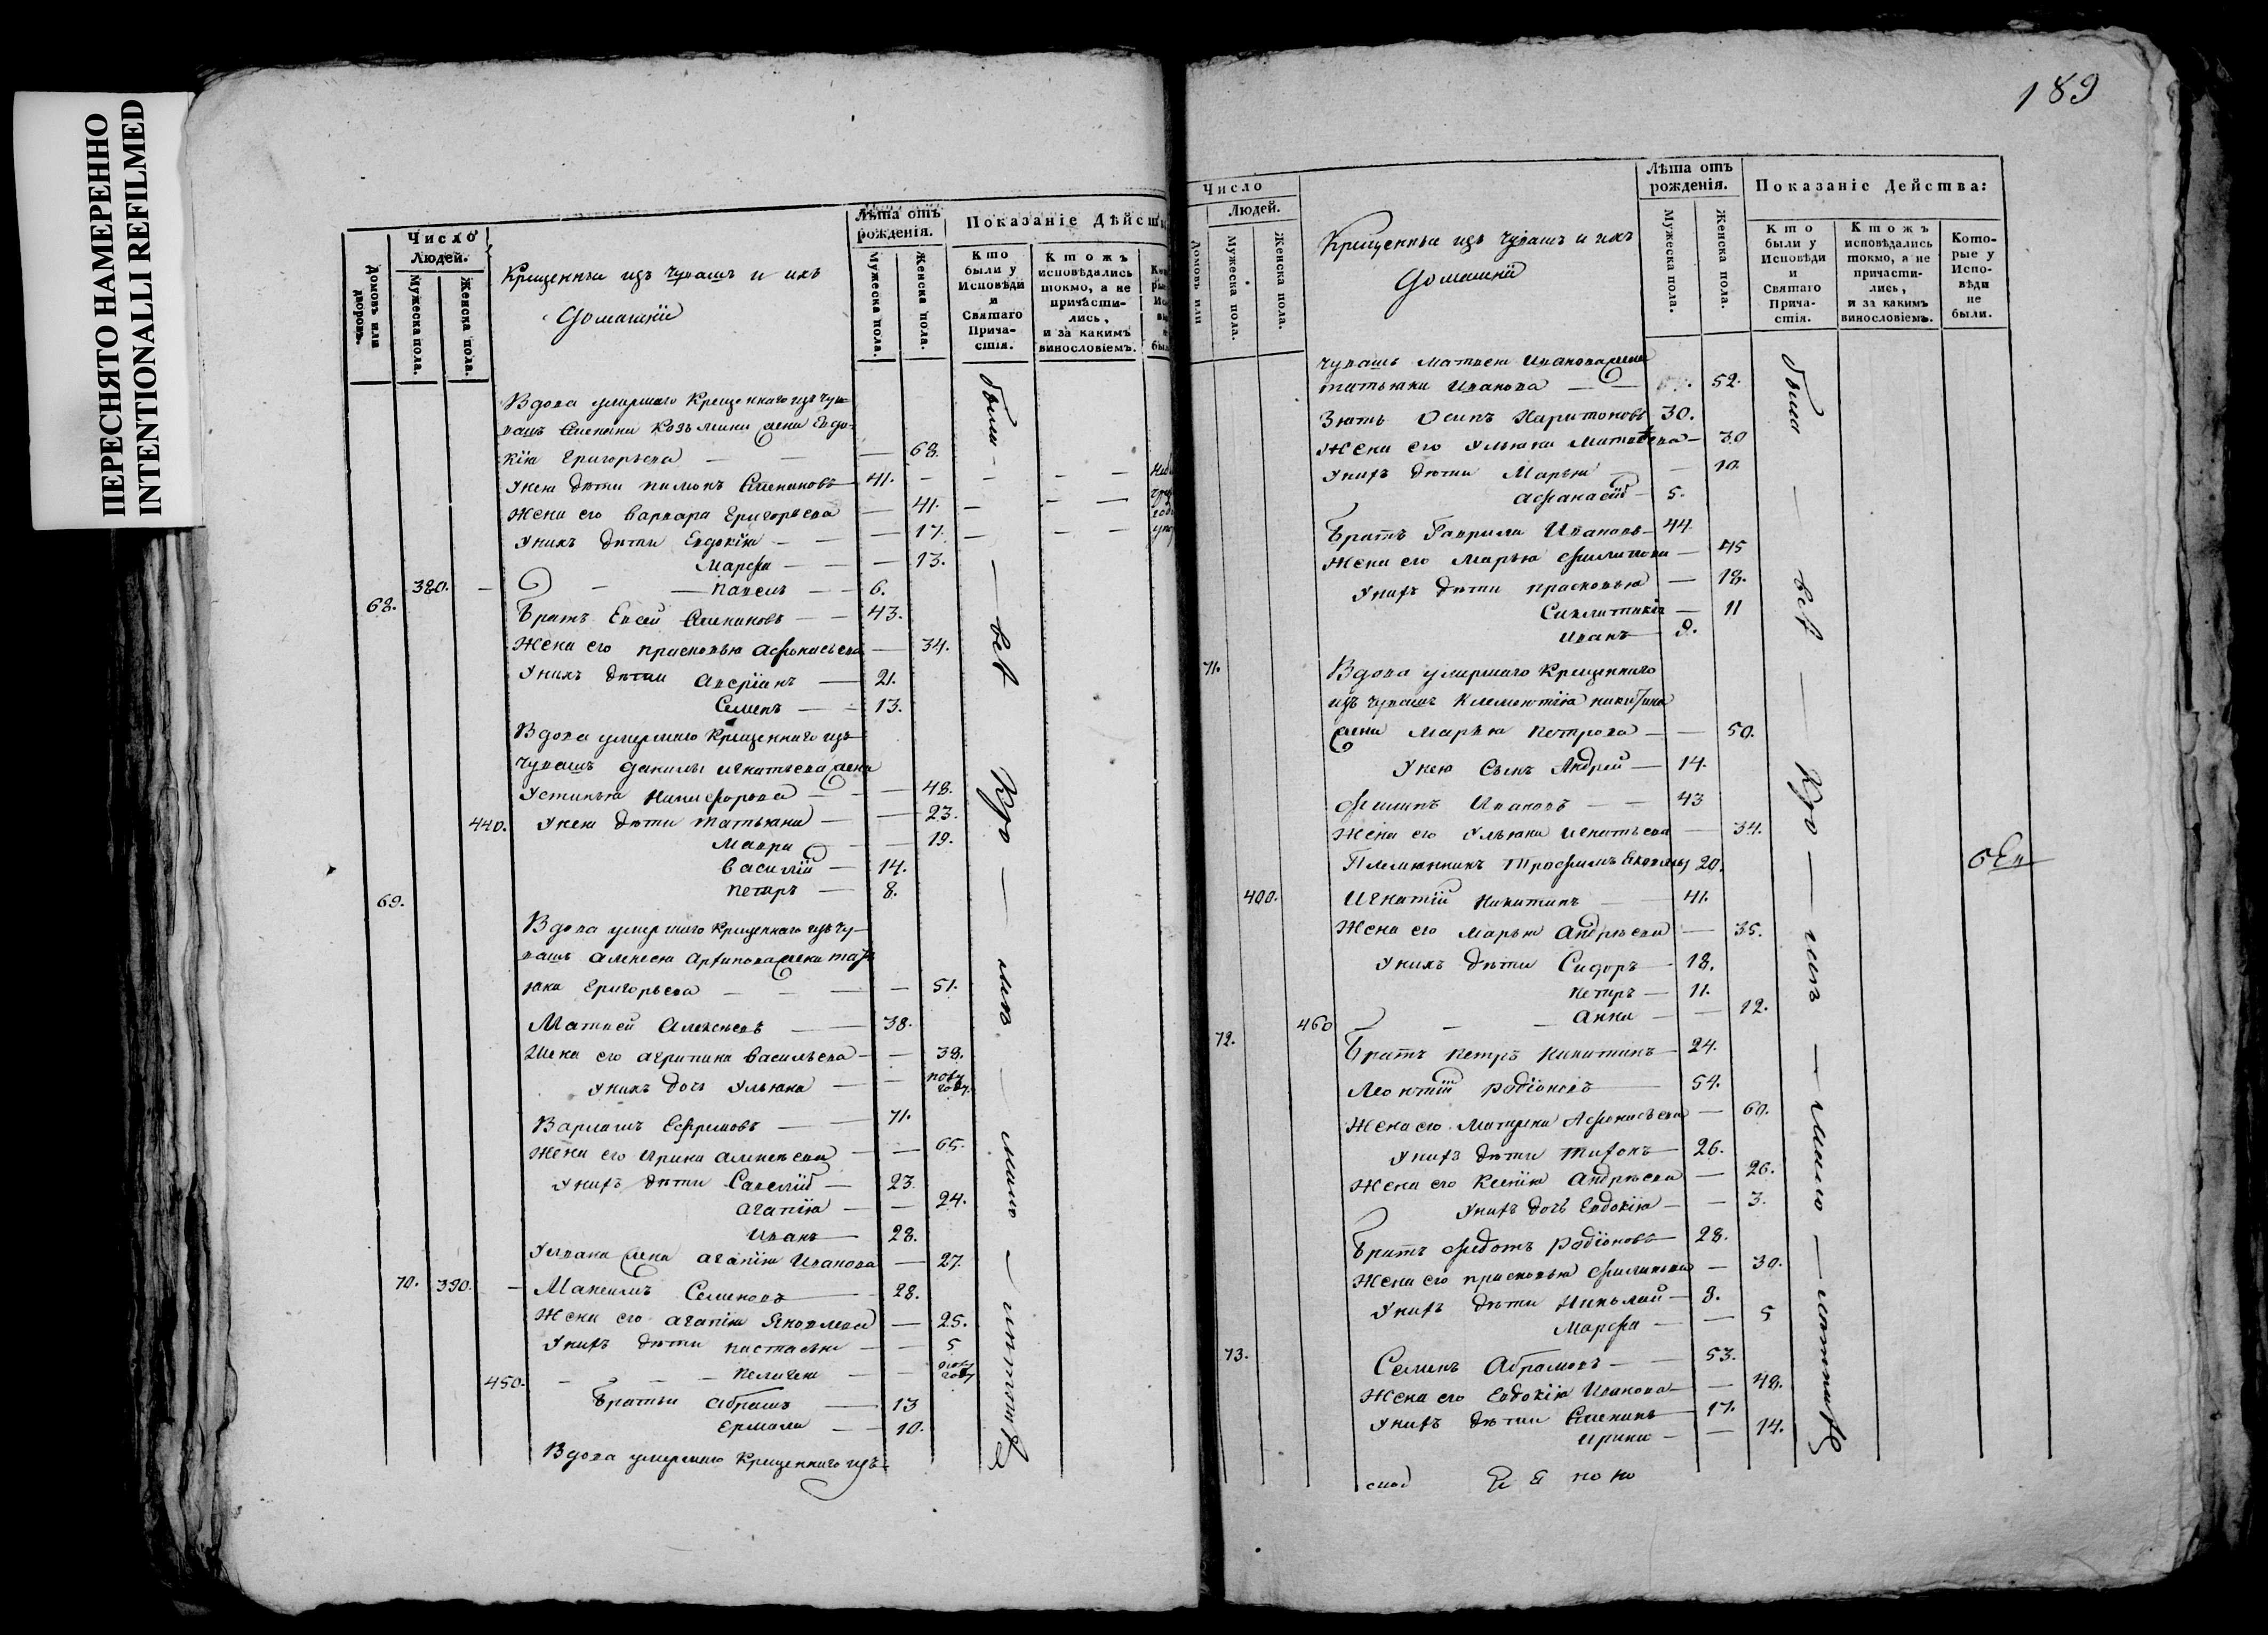 ПЕРЕСНЯТО НАМЕРЕННО
INTENTIONALLI REFILMED
Число
Людей.
Домовъ или дворовъ.
Мужеска пола.
Женска пола.
Крещенныи изъ Чувашъ и ихъ
Домашніи
Лѣта отъ рожденія.
Мужеска пола.
Женска пола.
Показаніе Дѣйст
Кто были у Исповѣди и Святаго Прича-стія.
Ктожъ исповѣдались токмо, а не причасти-лись, и за какимъ винословіемъ.
Вдова умершаго Крещеннаго изъ Чу-
вашъ Степана Козьмина жена Евдо-
кія Григорьева — — 68.
У нея дѣти Пимонъ Степановъ 41. —
Жена его Варвара Григорьева — 41.
У нихъ дѣти Евдокія — — 17.
Марфа — — 13.
380. — Павелъ — 6.
68.
Братъ Евсей Степановъ — 43.
Жена его Прасковья Афонасьева — 34.
У нихъ дѣти Авсріанъ — 21.
Семенъ — 13.
Вдова умершаго Крещеннаго изъ
Чувашъ Данилы Игнатьева жена
Устинья Никифорова — — 48.
440. У нея дѣти Татьяна — — 23.
Мавра — 19.
Василій — 14.
Петръ — 8.
69.
Вдова умершаго Крещеннаго изъ Чу-
вашъ Алексея Архипова жена Тать
яна Григорьева — — — 51.
Матвей Алексеевъ — 38.
Жена его Агрипина Васильева — — 38.
У нихъ дочь Ульяна — — полу году.
Варламъ Ефремовъ — 71.
Жена его Ирина Алексеева — — 65.
У нихъ дѣти Савелій — 23.
Агапія — — 24.
Иванъ — 28.
У Ивана жена Агапія Иванова — 27.
70. 390. — Максимъ Семеновъ — 28.
Жена его Агапія Яковлева — 25.
У нихъ дѣти Настасья — — 5
450. — — — Пелагея — — полу году
Братья Абрамъ — 13
Ермила — 10.
Вдова умершаго Крещеннаго изъ
были — всѣ
189
Число
Людей.
Домовъ или
Мужеска пола.
Женска пола.
Крещенныи изъ Чувашъ и ихъ
Домашніи
Лѣта отъ рожденія.
Мужеска пола.
Женска пола.
Показаніе Действа:
Кто были у Исповѣди и Святаго Прича-стія.
Ктожъ исповѣдались токмо, а не причасти-лись, и за какимъ винословіемъ.
Кото-рые у Испо-вѣди не были.
Чувашъ Матвея Иванова жена
Татьяна Иванова — 52.
Зять Осипъ Харитоновъ 30.
Жена его Ульяна Матвѣева — 30
У нихъ дѣти Марья — — 10.
Афанасій — 5.
Братъ Гаврила Ивановъ — 44.
Жена его Марья Филипова — 45
У нихъ дѣти Прасковья — 18.
Сиклитикія — 11
Иванъ — 9.
71.
Вдова умершаго Крещеннаго
изъ Чувашъ Клементія Никитина
жена Марья Петрова — — 50.
У нея Сынъ Андрей — 14.
Филипъ Ивановъ — — 43
Жена его Ульяна Игнатьева — 34.
Племянникъ Трофимъ Яковлевъ 20.
400. Игнатій Никитинъ — 41.
Жена его Марья Андрѣева — 35.
У нихъ дѣти Сидоръ — 18.
Петръ — 11.
460 — — — Анна — — 12.
72.
Братъ Петръ Никитинъ — 24.
Леонтій Родіоновъ — 54.
Жена его Матрена Афонасьева — 60.
У нихъ дѣти Титонъ — 26.
Жена его Ксенія Андрѣева — 26.
У нихъ дочь Евдокія — — 3.
Братъ Федотъ Родіоновъ — 28.
Жена его Прасковья Филипова — 30.
У нихъ дѣти Николай — 8.
Марфа — — 5
73.
Семенъ Абрамовъ — 53.
Жена его Евдокія Иванова — — 48.
У нихъ дѣти Степанъ — 17.
Ирина — — 14.
были — всѣ